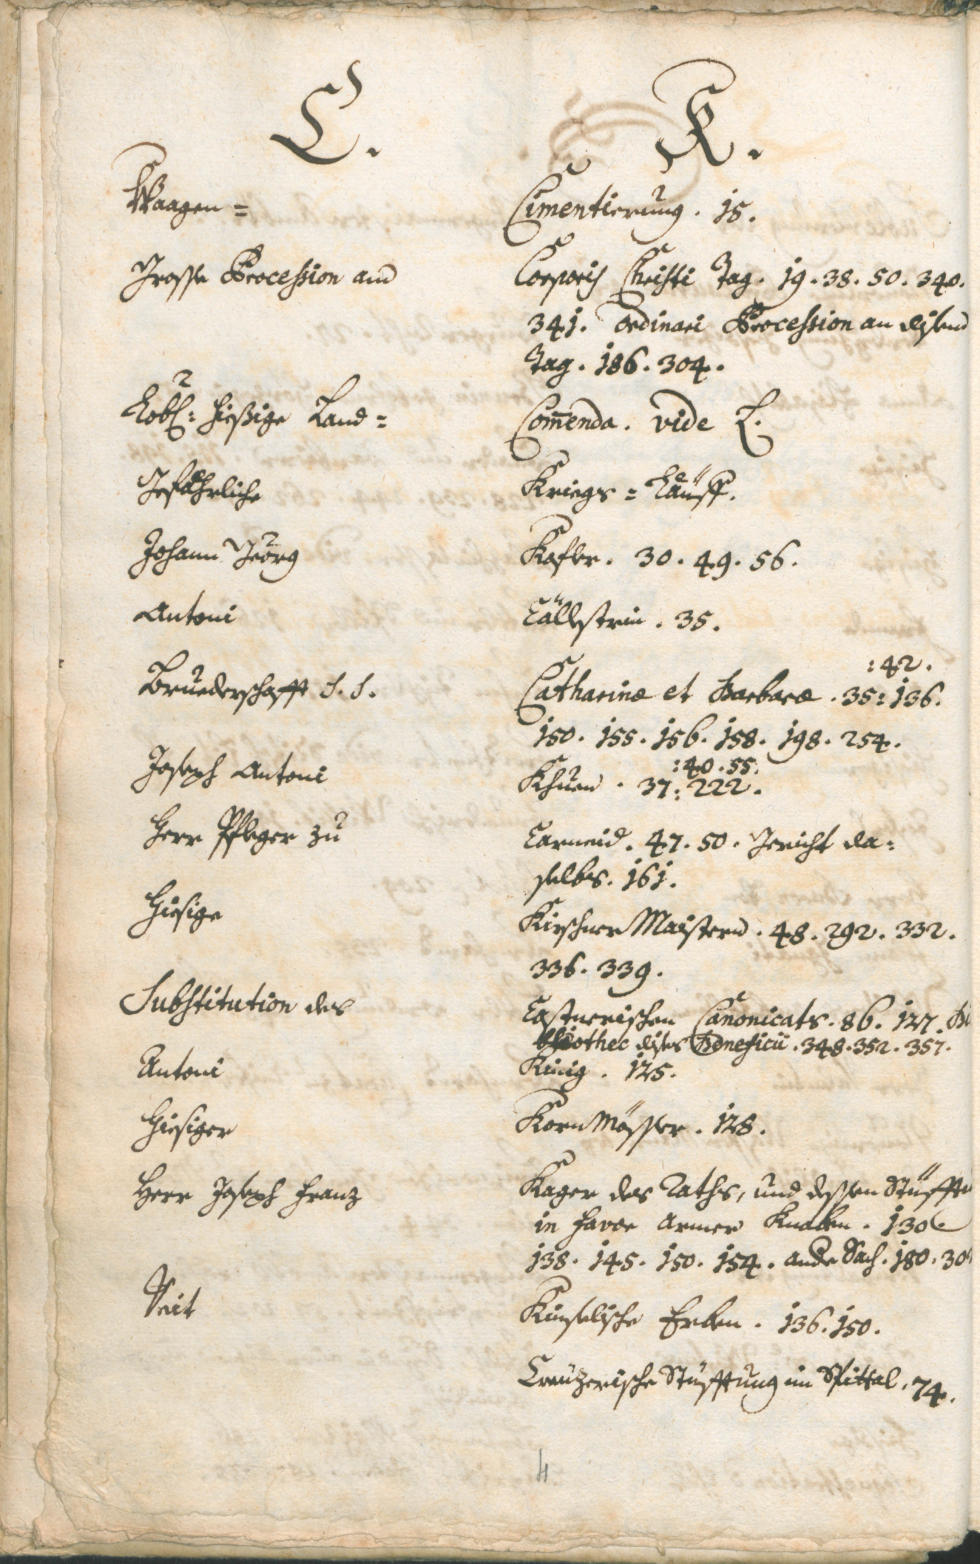 C. K.
Waagen= Cimentierung. 15.
Grosse Procession am Corporis Christi Tag. 19. 38. 50. 340.
341. ordinari Procession an disem
Tag. 186. 304.
Lobl: hießige Land= Com̅enda. vide L.
Gefährliche Kriegs=Läuff.
Johann Georg Kofler. 30. 49. 56.
Antoni Cällestrin. 35.
:42.
Bruederschafft S. S. Catharinæ et Barbaræ. 35: 136.
150. 155. 156. 158. 198. 254.
:40. 55.
Joseph Antoni Khuen. 37: 222.
Herr Pfleger zu Carneid. 47. 50. Gericht da=
selbs. 161.
Hiesige Kirschner Maistern. 48. 292. 332.
336. 339.
Substitution des Castnerischen Canonicats. 86. 127. Bi
bliothec dises Beneficii. 348. 352. 357.
Antoni Kinig. 125.
Hiesiger Korn Mösser. 128.
Herr Joseph Franz Kager des Raths, und dessen Stüffte
in favor armer Knaben. 130
138. 145. 150. 154. andr Sach. 180. 30
Veit Kinselische Erben. 136. 150.
Creuzerische Stüfftung im Spittal. 74.
4